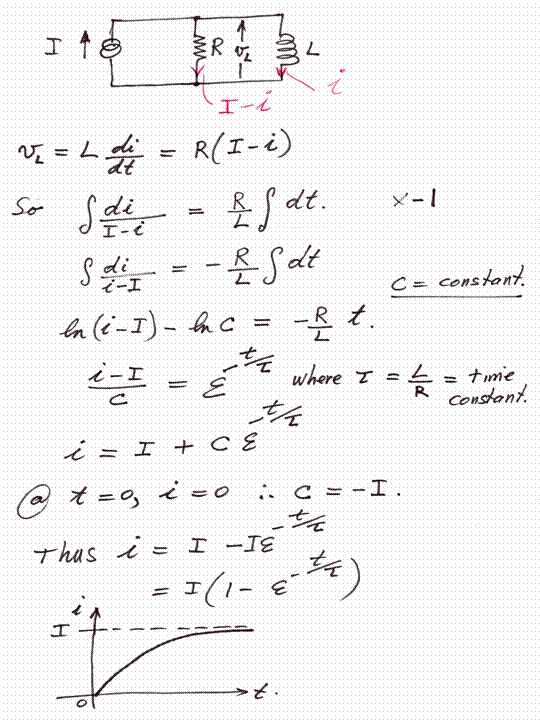 I R v_L L
I-i i
v_L = L di/dt = R(I-i)
So ∫ di/(I-i) = R/L ∫ dt. ×-1
∫ di/(i-I) = - R/L ∫ dt
C = constant.
ln(i-I) - ln C = -R/L t.
(i-I)/C = ε^(-t/τ) where τ = L/R = time constant.
i = I + C ε^(-t/τ)
@ t=0, i=0 ∴ C = -I.
Thus i = I - Iε^(-t/τ)
= I(1 - ε^(-t/τ))
i
I
0 t.